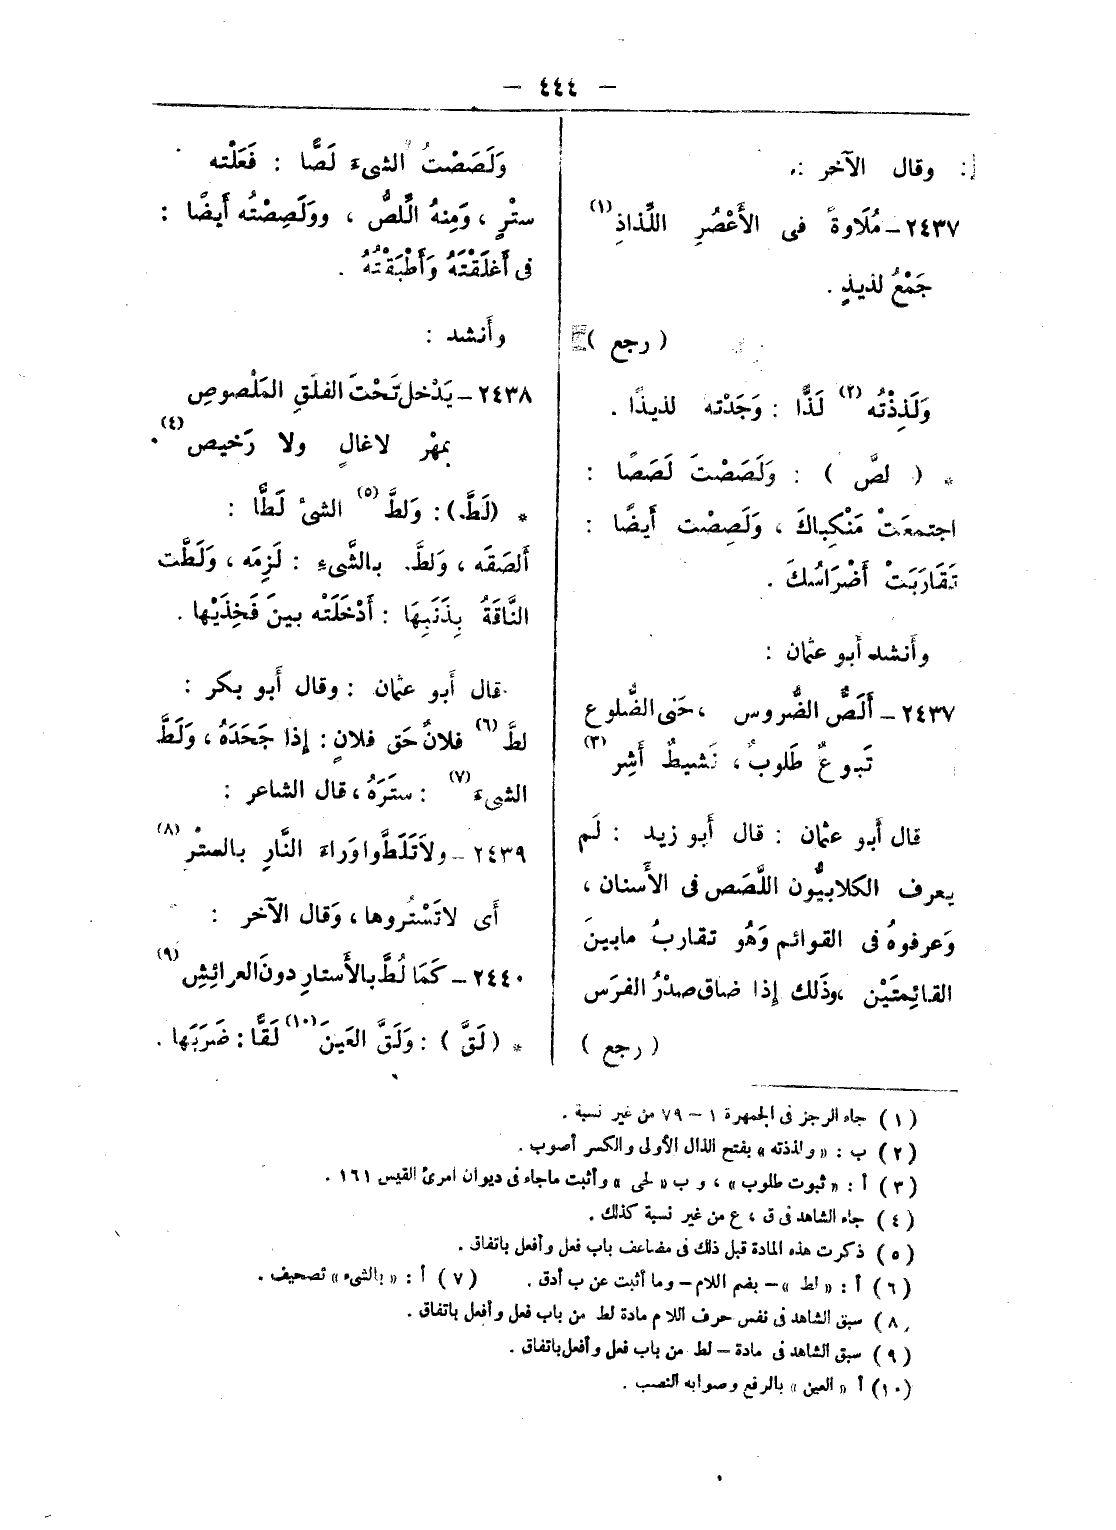 — ٤٤٤ —
وقال الآخر :
٢٤٣٧ – مُلَاوةً فى الأَعْصُرِ اللَّذاذِ (١)
جَمْعُ لذيذٍ .
( رجع )
وَلَذِذْتُه (٢) لَذًّا : وَجَدْته لذيذًا .
* ( لصَّ ) : وَلَصَصْتَ لَصَصًا :
اجتمعَتْ مَنْكِباكَ ، وَلَصِصْت أَيضًا :
تَقَارَبَتْ أَضْرَاسُكَ .
وأَنشد أَبو عثمان :
٢٤٣٧ – أَلَصُّ الضُّروس ، حَنِى الضُّلوع
تَبوعٌ طَلوبٌ ، نَشيطٌ أَشِر (٣)
قال أَبو عثمان : قال أَبو زيد : لَم
يعرف الكلابيُّون اللَّصَص فى الأَسنان ،
وَعرفوهُ فى القوائم وَهُو تقاربُ مابينَ
القائِمتَيْن ، وذَلك إِذا ضاق صدْرُ الفرَس
( رجع )
وَلَصَصْتُ الشىءَ لَصًّا : فَعَلْته
ستْرٍ ، وَمِنهُ الِّلصُّ ، وَولَصِصْتُه أَيضًا :
فى أَغلَقْتَهُ وَأَطْبَقْتُهُ .
وأَنشد :
٢٤٣٨ – يَدْخل تَحْتَ الفلَقِ المَلْصوصِ
بمهْر لاغالٍ ولا رَخيص (٤) .
* (لَطَّ) : وَلطَّ (٥) الشىْ لَطًّا :
أَلصَقَه ، وَلطَّ بالشَّىءِ : لَزِمَه ، وَلَطَّت
النَّاقَةُ بِذَنَبِهَا : أَدْخَلَتْه بينَ فَخِذَيْها .
قال أَبو عثمان : وقال أَبو بكر :
لطَّ (٦) فلانٌ حَق فلانٍ : إِذا جَحَدَهُ ، وَلَطَّ
الشىءَ (٧) : ستَرَهُ ، قال الشاعر :
٢٤٣٩ – ولاَتَلَطَّوا وَراءَ النَّارِ بالستْر (٨)
أَى لاتَسْتُروها ، وَقال الآخر :
٢٤٤٠ – كَمَا لُطَّ بالأَستارِ دونَ العرائِشِ (٩)
* ( لَقَّ ) : وَلَقَّ العَينَ (١٠) لَقًّا : ضَرَبَها .
(١) جاء الرجز فى الجمهرة ١ – ٧٩ من غير نسبة .
(٢) ب : « ولذذته » بفتح الذال الأولى والكسر أصوب .
(٣) أ : « ثبوت طلوب » ، و ب « لحى » وأثبت ماجاء فى ديوان امرئ القيس ١٦١ .
(٤) جاء الشاهد فى ق ، ع من غير نسبة كذلك .
(٥) ذكرت هذه المادة قبل ذلك فى مضاعف باب فعل وأفعل باتفاق .
(٦) أ : « لط » – بضم اللام – وما أثبت عن ب أدق . (٧) أ : « بالشىء » تصحيف .
(٨) سبق الشاهد فى نفس حرف اللام مادة لط من باب فعل وأفعل باتفاق .
(٩) سبق الشاهد فى مادة – لط من باب فعل وأفعل باتفاق .
(١٠) أ « العين » بالرفع وصوابه النصب .